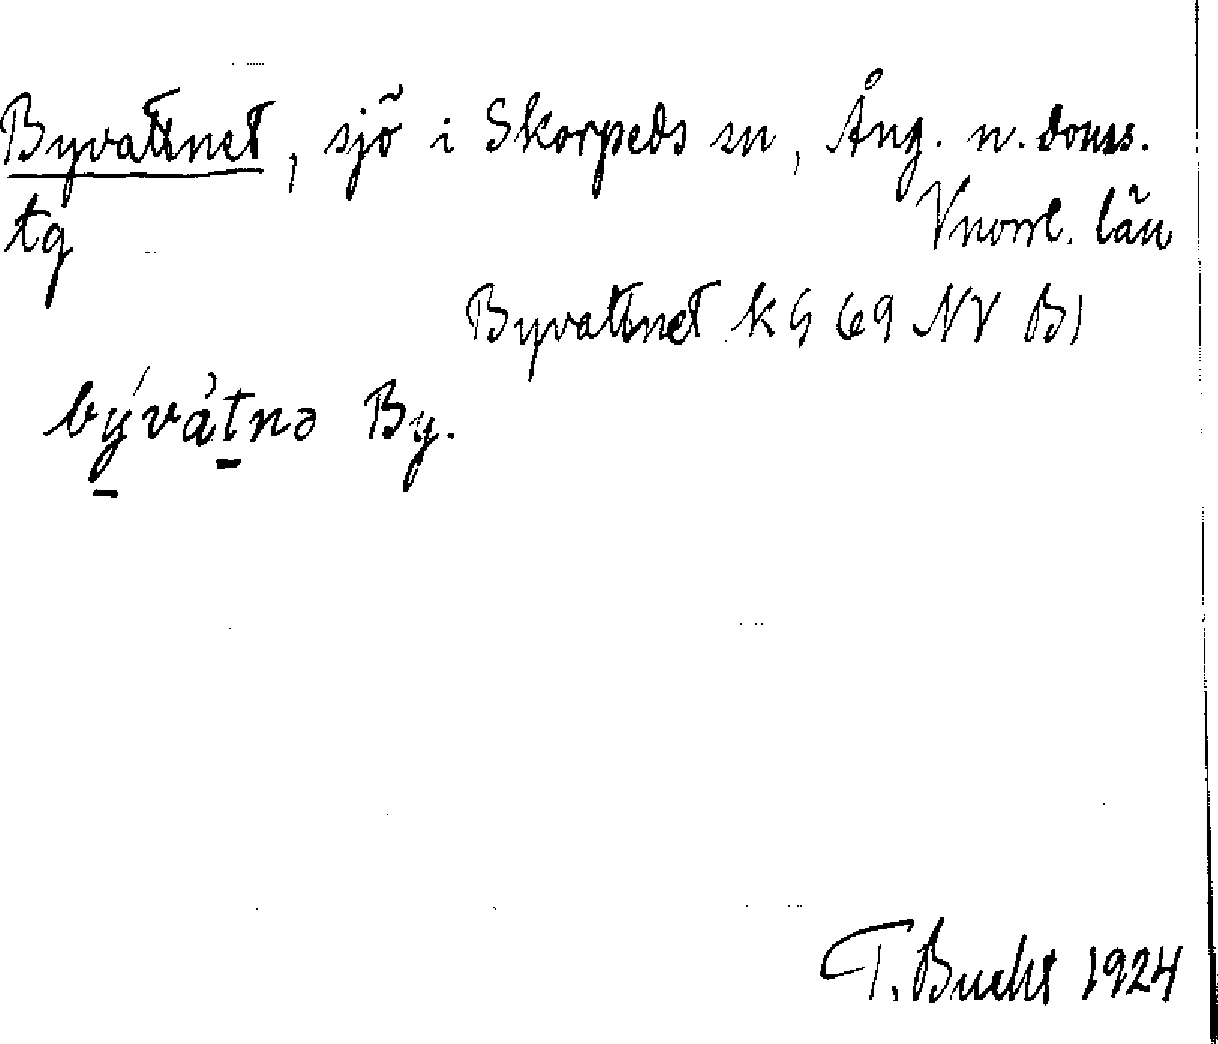 Byvattnet, sjö i Skorpeds sn, Ång. n. doms.
tg Vnorrl. län
Byvattnet KG 69 NV B1
by̱´vàṯnə By.
T. Bucht 1924